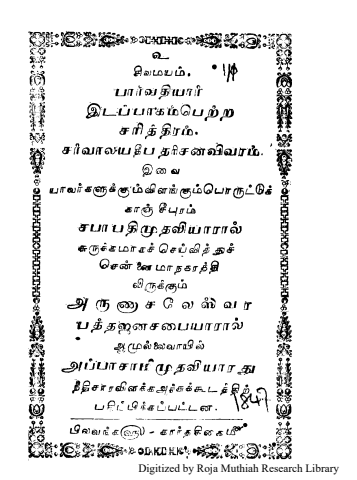 உ
சிவமயம்.
பார்வதியார்
இடப்பாகம்பெற்ற
சரித்திரம்.
சர்வாலயதீப தரிசனவிவரம்.
இவை
யாவர்களுக்கும்விளங்கும்பொருட்டுக்
காஞ்சீபுரம்
சபாபதிமுதலியாரால்
சுருக்கமாகச் செய்வித்துச்
சென்னைமாநகரத்தி
லிருக்கும்
அருணாசலேஸ்வர
பத்தஜனசபையாரால்
அமுல்லைவாயில்
அப்பாசாமிமுதலியாரது
நீதிசாரவிளக்க அச்சுக்கூடத்திற்
பதிப்பிக்கப்பட்டன.
1847
பிலவங்க௵ - கார்த்திகைமீ
Digitized by Roja Muthiah Research Library